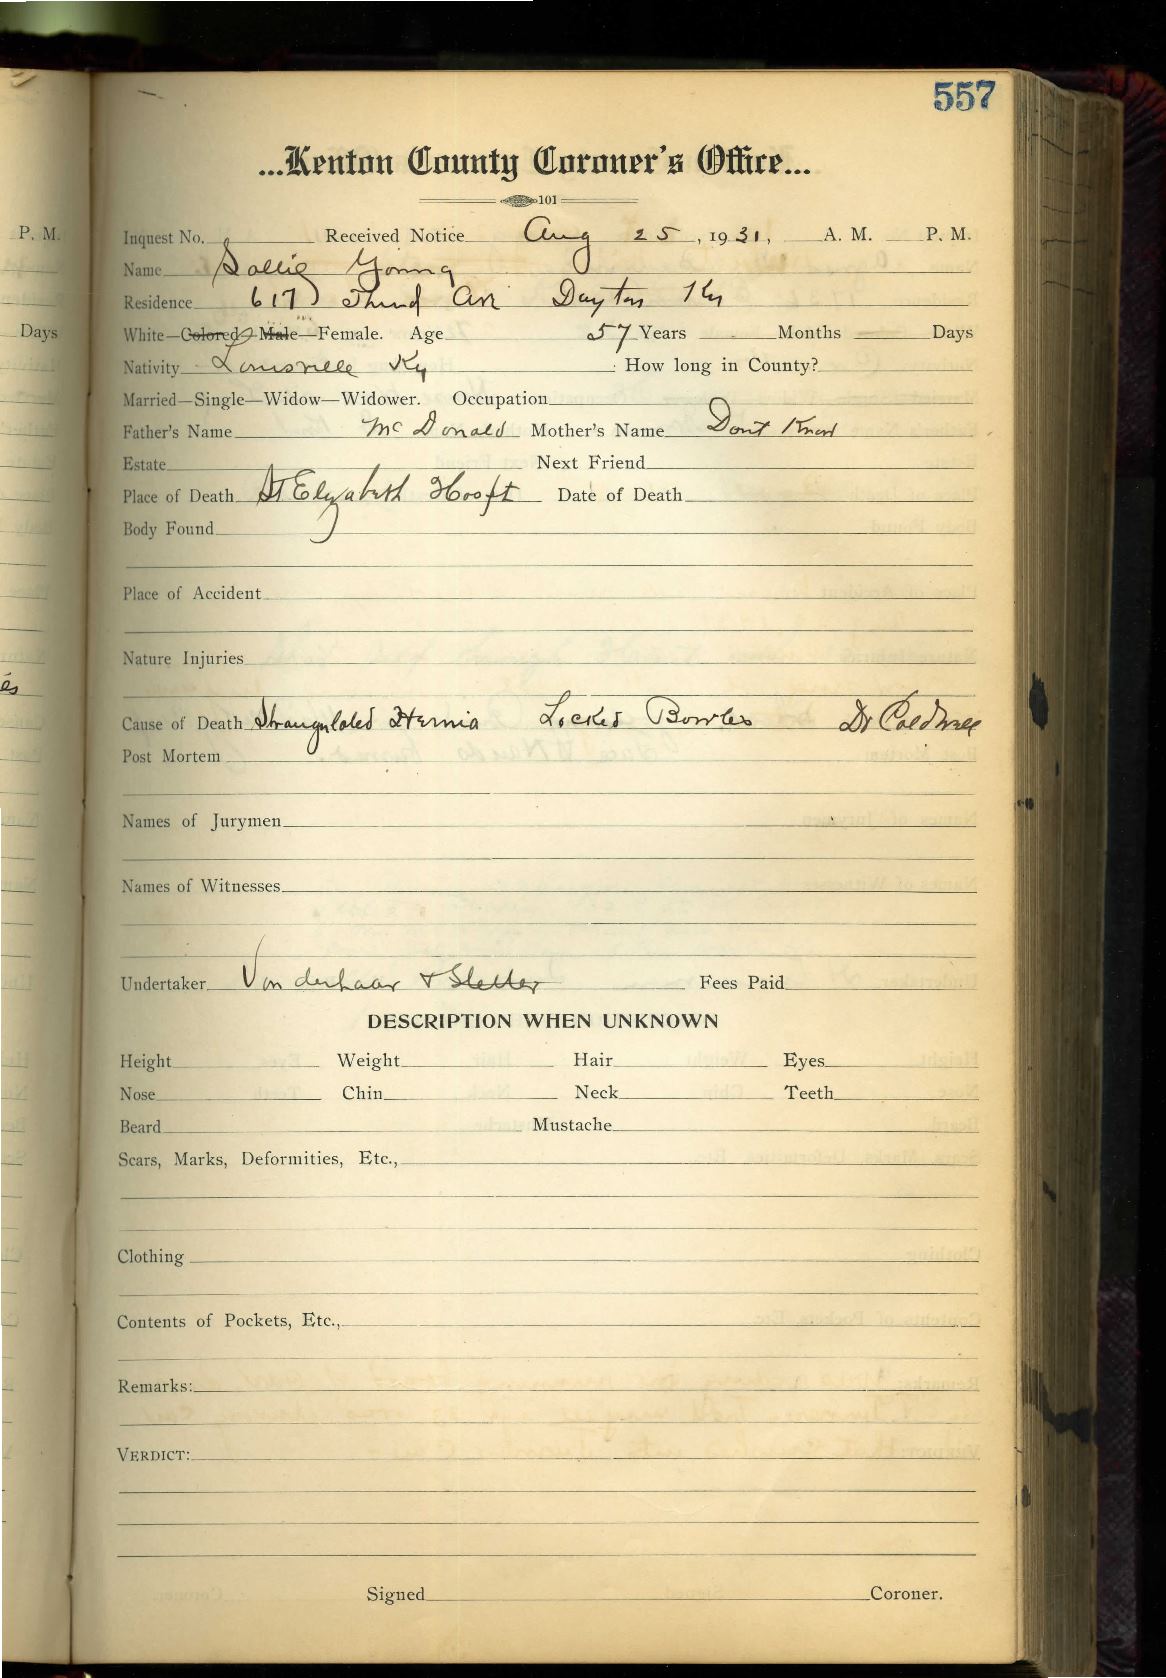 557
...Kenton County Coroner's Office...
101
P. M.
Inquest No. Received Notice Aug 25, 1931, A. M. P. M.
Name Sallie Young
Residence 617 Third Ave Dayton Ky
Days
White—Colored—Male—Female. Age 57 Years Months Days
Nativity Louisville Ky How long in County?
Married—Single—Widow—Widower. Occupation
Father's Name McDonald Mother's Name Dont Know
Estate Next Friend
Place of Death St Elyabeth Hospt Date of Death
Body Found
Place of Accident
Nature Injuries
es
Cause of Death Strangulated Hernia Locked Bowles Dr Caldwell
Post Mortem
Names of Jurymen
Names of Witnesses
Undertaker Vonderhaar & Stetter Fees Paid
DESCRIPTION WHEN UNKNOWN
Height Weight Hair Eyes
Nose Chin Neck Teeth
Beard Mustache
Scars, Marks, Deformities, Etc.,
Clothing
Contents of Pockets, Etc.,
Remarks:
VERDICT:
Signed Coroner.